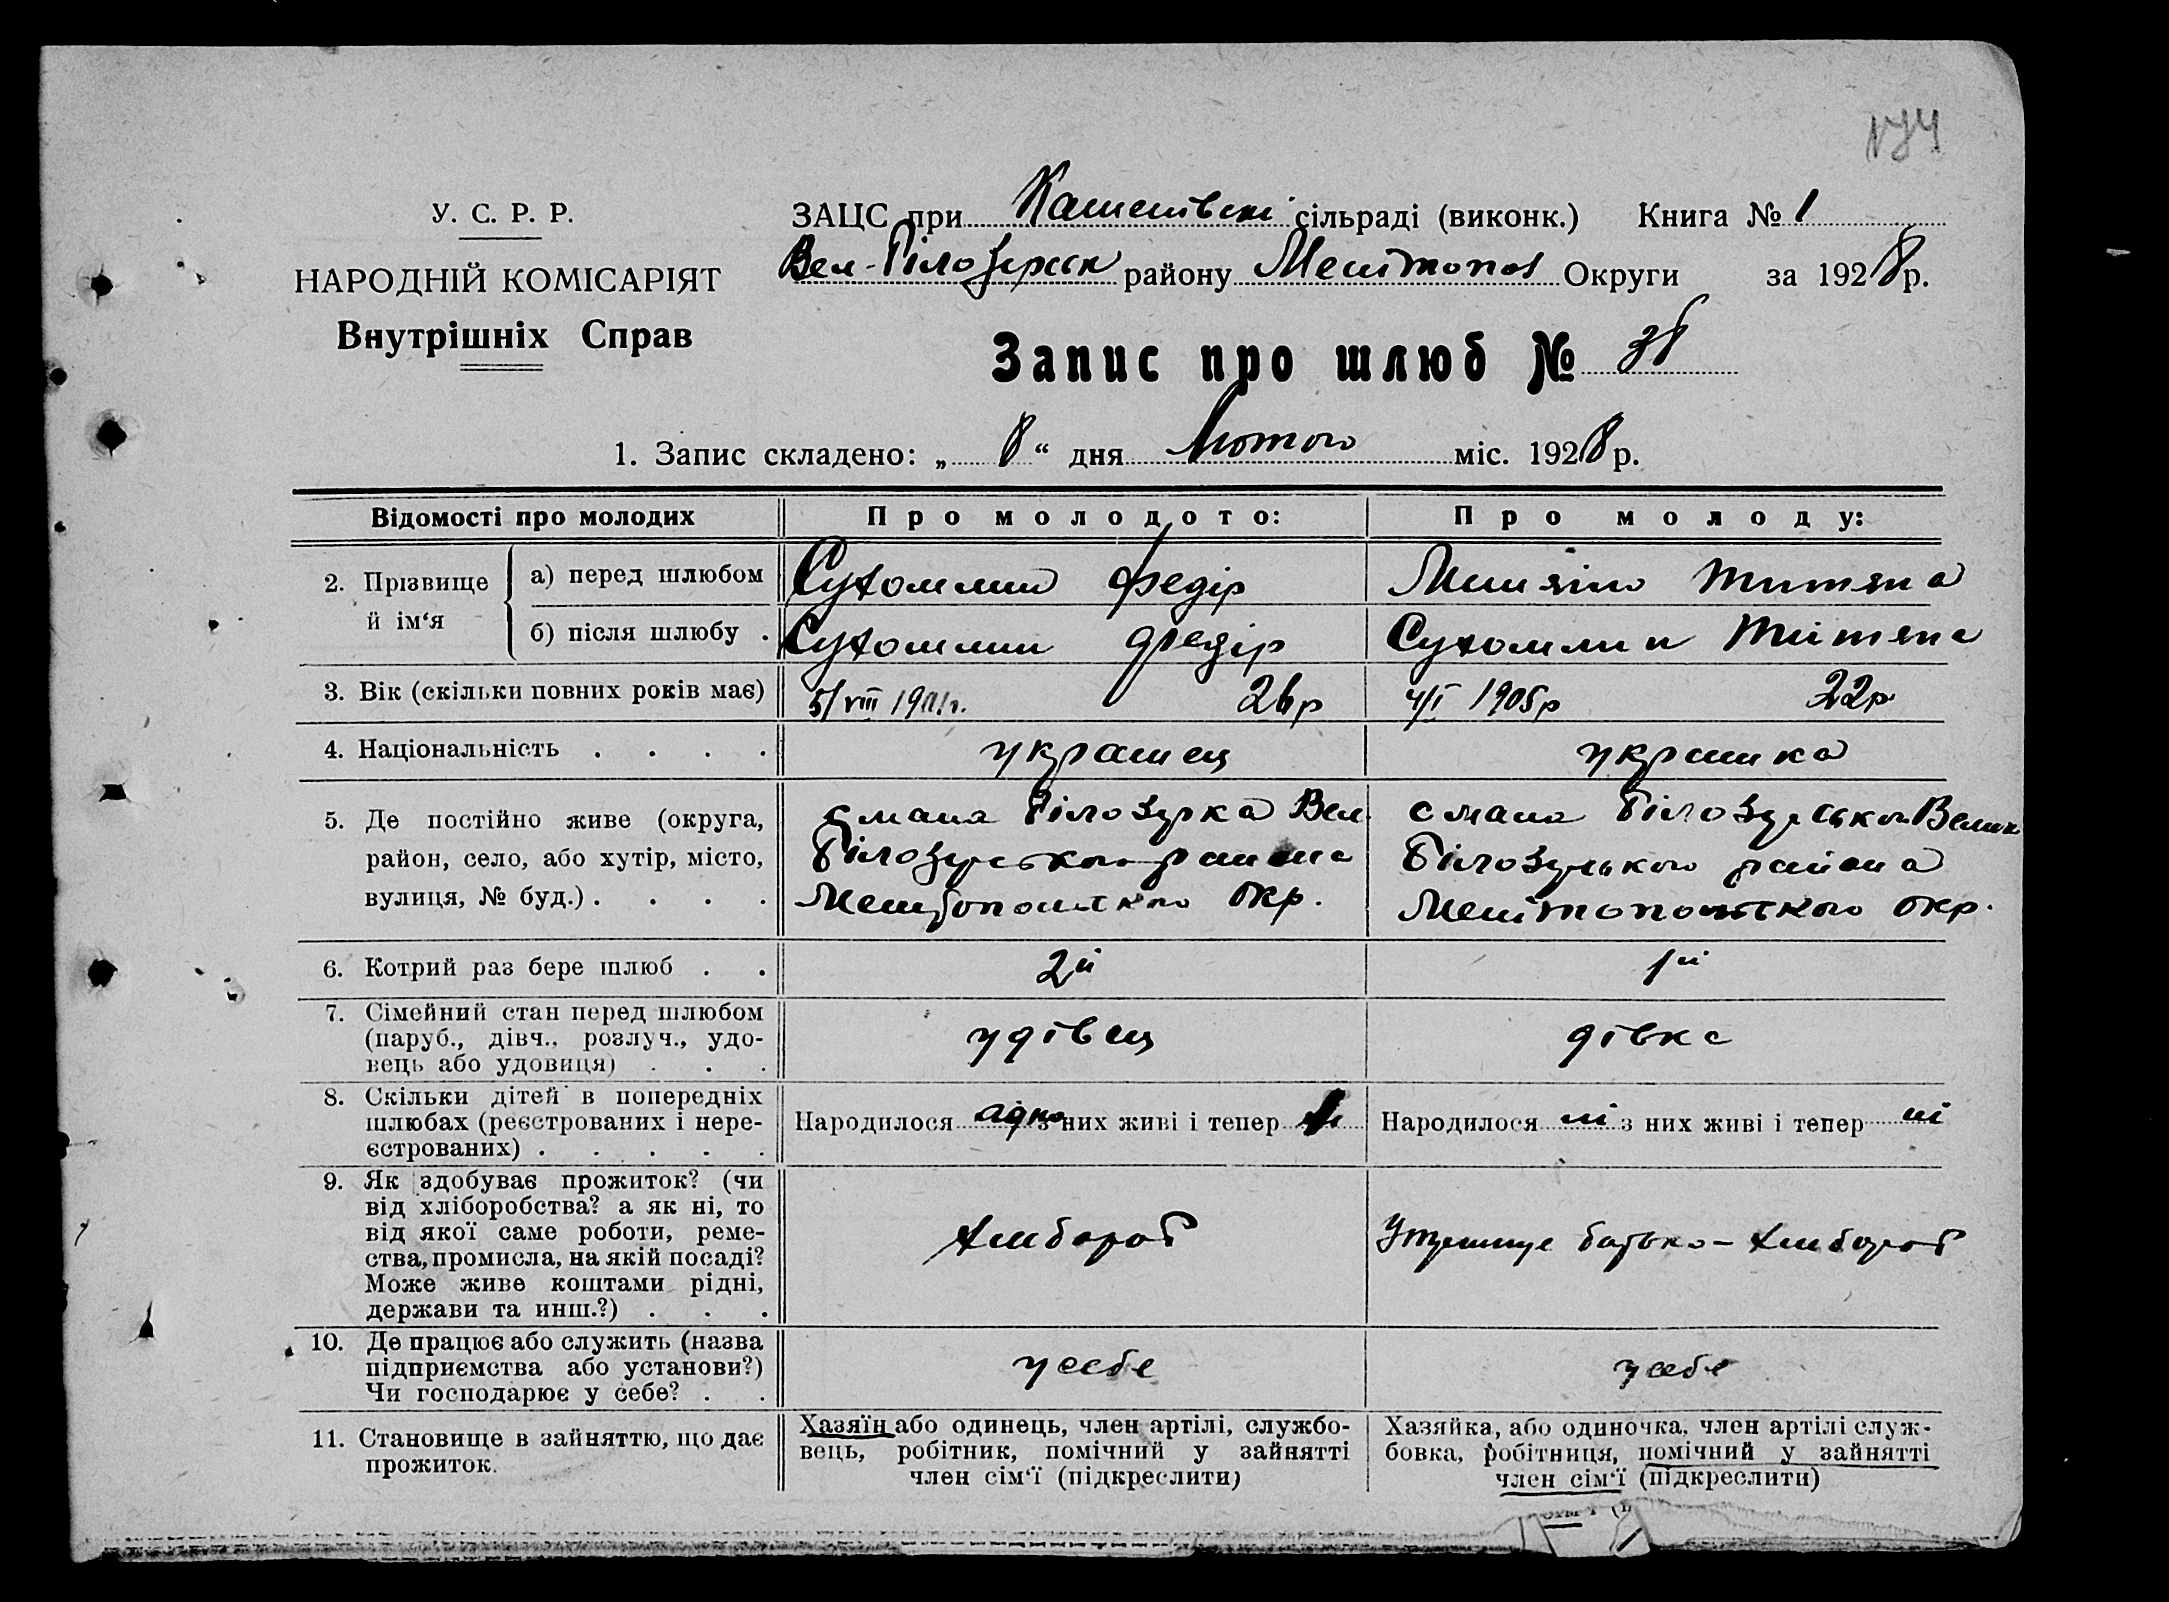 174
У. С. Р. Р.
НАРОДНІЙ КОМІСАРІЯТ
Внутрішніх Справ
ЗАЦС при сільраді (виконк.) Книга № 1
Вел-Білозерськ району Мелітопол Округи за 1928 р.
Запис про шлюб № 38
1. Запис складено: „ 8 “ дня Лютого міс. 1928 р.
Відомості про молодих Про молодого: Про молоду:
2. Прізвище й ім‘я
а) перед шлюбом Сухомлин Федір Титяна
б) після шлюбу . Сухомлин Федір Сухомлин Титяна
3. Вік (скільки повних років має) 5/VIII 1901р. 26р 4/I 1905р 22р
4. Національність . . . . українец украинка
5. Де постійно живе (округа,
район, село, або хутір, місто,
вулиця, № буд.) . . . .
Мала Білозурка Вел
Білозурського района
Мелітопольского окр.
Мала Білозурська Велик
Білозурького района
Мелітопольского окр.
6. Котрий раз бере шлюб . . 2й 1й
7. Сімейний стан перед шлюбом
(паруб., дівч., розлуч., удо-
вець або удовиця) . . .
удівец дівка
8. Скільки дітей в попередніх
шлюбах (реєстрованих і нере-
єстрованих) . . . . .
Народилося одно з них живі і тепер Народилося ні з них живі і тепер ні
9. Як здобуває прожиток? (чи
від хліборобства? а як ні, то
від якої саме роботи, реме-
ства, промисла, на якій посаді?
Може живе коштами рідні,
держави та инш.?) . . .
хлібороб
Утримує батько - хлібороб
10. Де працює або служить (назва
підприємства або установи?)
Чи господарює у себе? . .
у себе у себе
11. Становище в зайняттю, що дає
прожиток.
Хазяїн або одинець, член артілі, службо-
вець, робітник, помічний у зайнятті
член сім‘ї (підкреслити)
Хазяйка, або одиночка, член артілі служ-
бовка, робітниця, помічний у зайнятті
член сім‘ї (підкреслити)